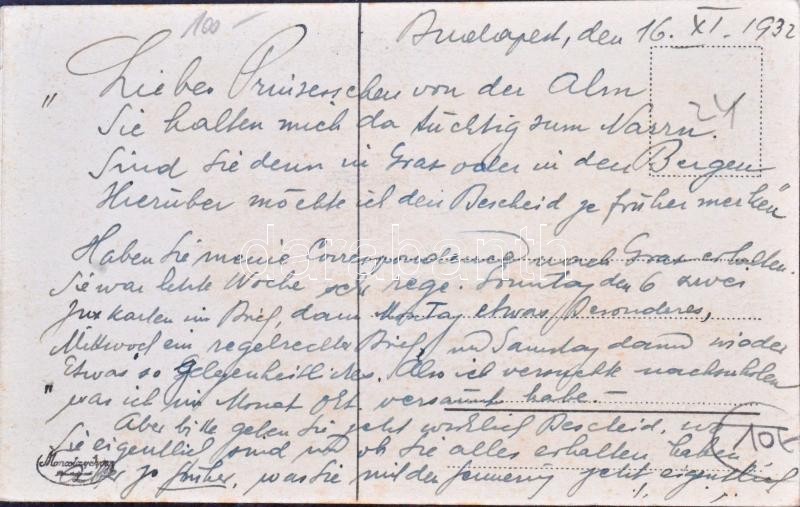 100 –
Budapest, den 16. XI. 1932
24
" Liebes Prinzesschen von der Alm
Sie halten mich da tüchtig zum Narrn.
Sind Sie denn in Graz oder in den Bergen
Hierüber möchte ich den Bescheid je früher merken"
Haben Sie meine Correspondence nach Graz erhalten.
Sie war letzte Woche sehr rege. Sonntag den 6 zwei
Juxkarten im Brief, dann Montag etwas Besonderes,
Mittwoch ein regelrechter Brief, und Samstag dann wieder
"Etwas so Gelegenheitliches. Also ich versuchte nachzuholen
"was ich im Monat Okt. versäumt habe. –
Aber bitte geben Sie jetzt wirklich Bescheid, wo
Sie eigentlich sind und ob Sie alles erhalten haben,
je früher, was Sie mit der jetzt eigentlich
10x
darabanth